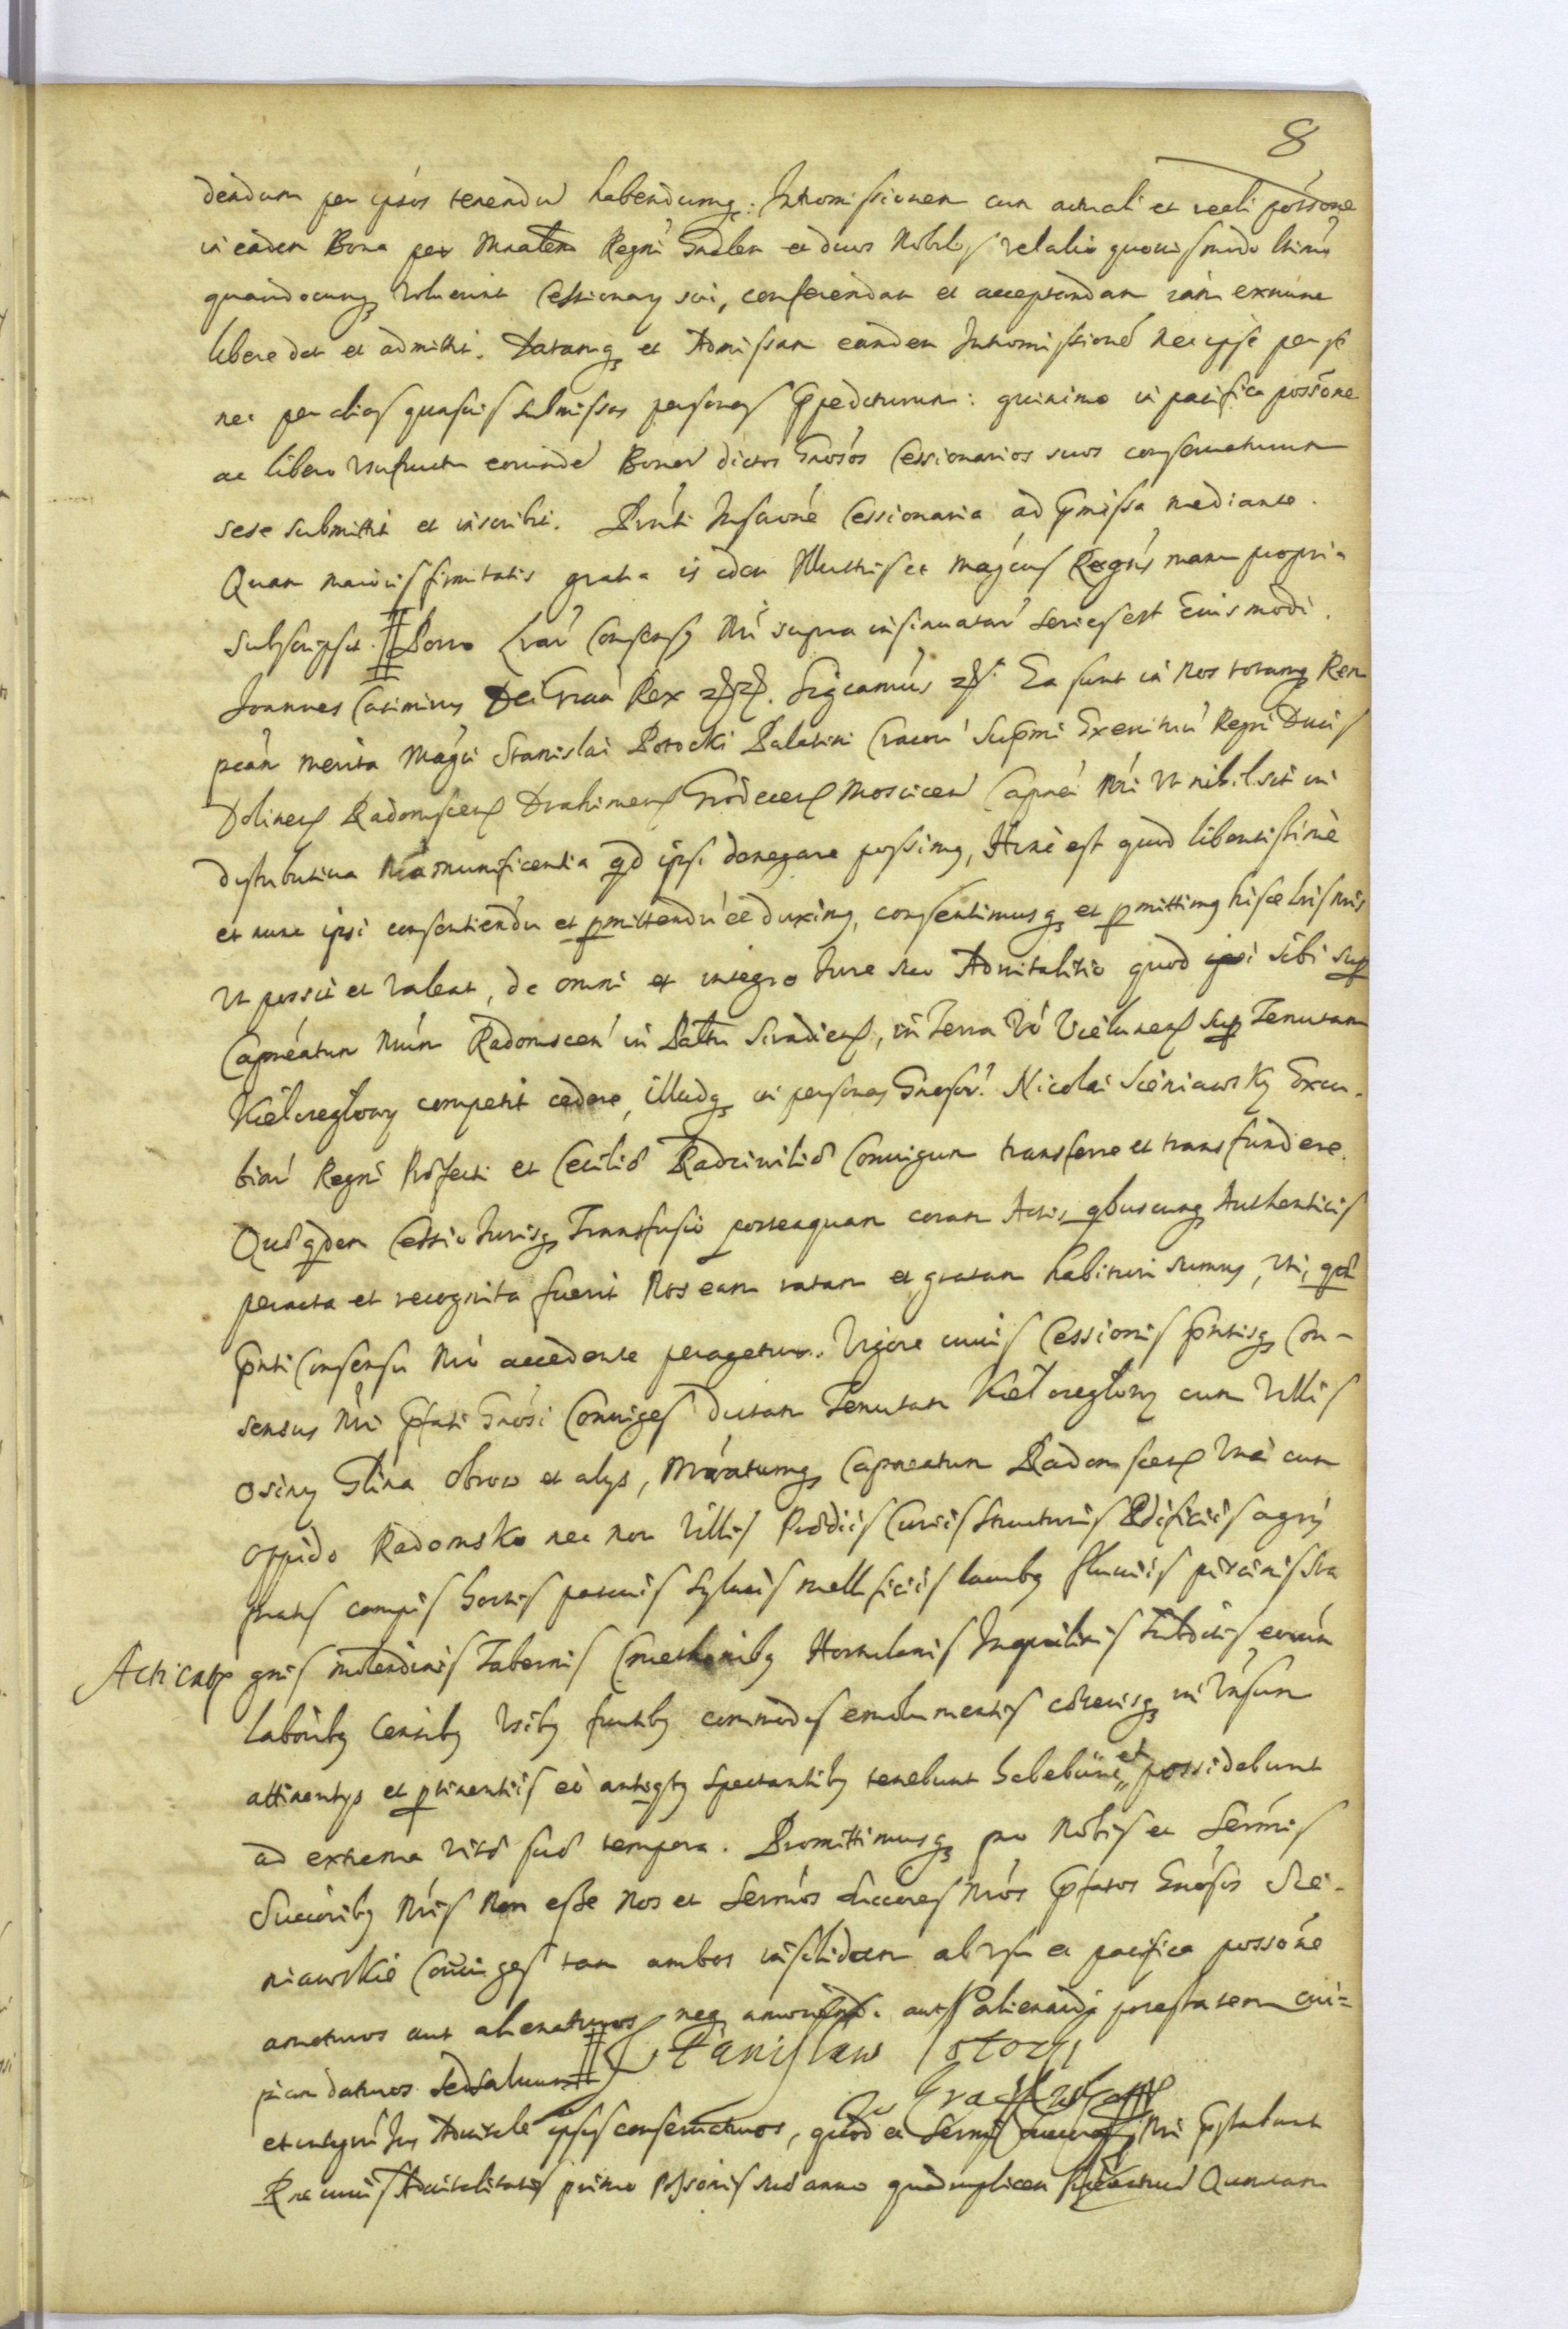 8
dendam per ipsos tenendū habendumq: Intromissionem cum actuali et reali possone
in eadem Bona per Mnalem Regni Gnalem et duos Nobiles vel alio quouis modo ltimo
quandocunq voluerint Cessionarij sui, conferendam et acceptandam iam exnunc
libere dat et admittit. Datamq et Admissam eandem Intromissioné nec ipse per se
nec per alias quasuis submissas personas Ppediturum: quinimo in pacifica possone
ac libero usufructu eorundē Bonor dictos Gnosos Cessionarios suos conseruaturum
sese submittit et inscribit. Prnti Inscrōne Cessionaria ad Pmissa mediante.
Quam maioris firmitatis gratia is idem Illustris et Magcus Recgns manu propria
subscripsit. Porro Lrar Consensus Nri supra insinuatar series est Eiusmodi.
Joannes Casimirus Dei Graa Rex etc. Sigcamus etc. Ea sunt in Nos totamq Rem
pcam merita Magci Stanislai Potocki Palatini Cracou Supmi Exercituū Regni Ducis
Dolinen Radomscen Drahimen Grodecen Moscicen Capnei Nri Vt nihil sit in
distributiua Nra munificentia qd ipsi denegare possimq, Hinc est quod libentissimè
et nunc ipsi consentiendū et pmittendū eē duximq, consentimusq et pmittimq hisce lris nris
Vt possit et valeat, de omni et integro Iure suo Aduitalitio quod ipsi sibi sup
Capneatum Nrum Radomscen in Pallu Siradien, in Terra Vo Vielunen sup Tenutam
Kiełczegłowy competit cedere, illudq in personas Gnosor Nicolai Sieniawsky Excu-
biar Regni Pfecti et Ceciliæ Radziwiliæ Coniugum transferre et transfundere.
Quæqdem Cessio Iurisq Transfusio posteaquam coram Actis qbuscunq Authenticis
peracta et recognita fuerit Nos eam ratam et gratam habituri sumus, Vti, qæ
Pnti Consensu Nro accedente peragetur. Vigore cuius Cessionis Pntisq Con-
sensus Nri Pfati Gnosi Coniuges dictam Tenutam Kiełczegłowy cum Villis
Osiny Glina Obrow et alys, Mōratumq Capneatum Radomscen Vna cum
Oppido Radomsko nec non Villis Prædiis Curiis Structuris Ædificiis agris
pratis campis hortis pascuis syluis mellificiis lacubq fluuiis piscinis sta
Acticatp
gnis molendinis Tabernis Cmethonibq Hortulanis Inquilinis Subditis eorum
laboribq Censibq Vsibq fructibq commodis emolumentis cæterisq in Vnsum
attinentys et ptinentiis eo antiqtq spectantibq tenebunt habebunt et possidebunt
ad extrema vitæ suæ tempora. Promittimusq pro Nobis et Sermis
Succoribq Nris Non esse Nos et Sermos Succores Nros Pfatos Gnosos Sie-
niawskie Coniuges tam ambos insolidum ab vsu et pacifica possone
amoturos aut alienaturos neq amouendi aut alienandi potestatem cui-
piam daturos sed saluum
Stanislaw Potocky
et integrū Ius Aduitale ipsis conseruaturos, quod et Sermi Succores Nri Pstabunt
Rne cuius Aduitalitatis primo Possonis suæ anno quadruplicem Quartam